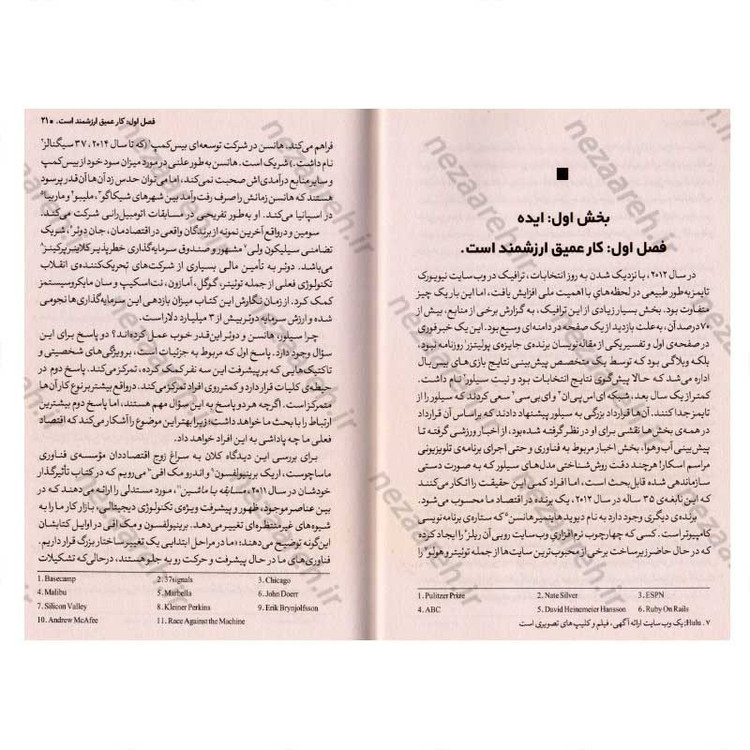 بخش اول: ایده
فصل اول: کار عمیق ارزشمند است.
در سال ۲۰۱۲، با نزدیک شدن به روز انتخابات، ترافیک در وب‌سایت نیویورک
تایمز به‌طور طبیعی در لحظه‌های با اهمیت ملی افزایش یافت، اما این بار یک چیز
متفاوت بود. بخش بسیار زیادی از این ترافیک، به گزارش برخی از منابع، بیش از
۷۰ درصد آن، به‌علت بازدید از یک صفحه در دامنه‌ای وسیع بود. این یک خبر فوری
در صفحه‌ی اول و تفسیر یکی از مقاله‌نویسان برنده‌ی جایزه‌ی پولیتزر۱ روزنامه نبود،
بلکه وبلاگی بود که توسط یک متخصص پیش‌بینی نتایج بازی‌های بیس‌بال
اداره می‌شد که حالا پیش‌گوی نتایج انتخابات بود و نیت سیلور۲ نام داشت.
کمتر از یک سال بعد، شبکه‌ ای اس پی ان۳ و ای بی سی۴ سعی کردند که سیلور را از
تایمز جدا کنند. آن‌ها قرارداد بزرگی به سیلور پیشنهاد دادند که براساس آن قرارداد
در همه‌ی بخش‌ها نقشی برای او در نظر گرفته شده بود، از اخبار ورزشی گرفته تا
پیش‌بینی آب‌وهوا، بخش اخبار مربوط به فناوری و حتی اجرای برنامه‌ی تلویزیونی
مراسم اسکار! هرچند دقت روش‌شناختی مدل‌های سیلور که به صورت دستی
سازماندهی شده قابل بحث است، اما افراد کمی این حقیقت را انکار می‌کنند
که این نابغه‌ی ۳۵ ساله در سال ۲۰۱۲، یک برنده در اقتصاد ما محسوب می‌شود.
برنده‌ی دیگری وجود دارد به نام دیوید هاینمیر هانسن۵ که ستاره‌ی برنامه‌نویسی
کامپیوتر است. کسی که چهارچوب نرم‌افزاری وب‌سایت روبی آن ریلز۶ را ایجاد کرده
که در حال حاضر زیرساخت برخی از محبوب‌ترین سایت‌ها از جمله توئیتر و هولو۷ را
1. Pulitzer Prize 2. Nate Silver 3. ESPN
4. ABC 5. David Heinemeier Hansson 6. Ruby On Rails
۷. Hulu: یک وب سایت ارائه آگهی، فیلم و کلیپ‌های تصویری است
فصل اول: کار عمیق ارزشمند است. ■ ۲۱
فراهم می‌کند. هانسن در شرکت توسعه‌ای بیس‌کمپ۱ (که تا سال ۲۰۱۴، ۳۷ سیگنالز۲
نام داشت.) شریک است. هانسن به‌طور علنی در مورد میزان سود خود از بیس کمپ
و سایر منابع درآمدی‌اش صحبت نمی‌کند، اما می‌توان حدس زد آن‌ها آن‌قدر پرسود
هستند که هانسن زمانش را صرف رفت‌وآمد بین شهرهای شیکاگو۳، ملیبو۴ و ماربیا۵
در اسپانیا می‌کند. او به‌طور تفریحی در مسابقات اتومبیل‌رانی شرکت می‌کند.
سومین و در واقع آخرین نمونه از برندگان واقعی در اقتصادمان، جان دوئر۶، شریک
تضامنی سیلیکون ولی۷ مشهور و صندوق سرمایه‌گذاری خطرپذیر کلاینر پرکینز۸
می‌باشد. دوئر به تأمین مالی بسیاری از شرکت‌های تحریک‌کننده‌ی انقلاب
تکنولوژی فعلی از جمله توئیتر، گوگل، آمازون، نت‌اسکیپ و سان مایکروسیستمز
کمک کرد. از زمان نگارش این کتاب میزان بازدهی این سرمایه‌گذاری‌ها نجومی
شده و ارزش سرمایه دوئر بیش از ۳ میلیارد دلار است.
چرا سیلور، هانسن و دوئر این‌قدر خوب عمل کرده‌اند؟ دو پاسخ برای این
سؤال وجود دارد. پاسخ اول که مربوط به جزئیات است، بر ویژگی‌های شخصیتی و
تاکتیک‌هایی که بر پیشرفت این سه نفر کمک کرده، تمرکز می‌کند. پاسخ دوم در
حیطه‌ی کلیات قرار دارد و کمتر روی افراد تمرکز می‌کند. در واقع بیشتر بر نوع کار آن‌ها
متمرکز است. اگرچه هر دو پاسخ به این سؤال مهم هستند، اما پاسخ دوم بیشترین
ارتباط را با بحث ما خواهد داشت؛ زیرا بهتر این موضوع را آشکار می‌کند که اقتصاد
فعلی ما چه پاداشی به این افراد خواهد داد.
برای بررسی این دیدگاه کلان به سراغ زوج اقتصاددان مؤسسه‌ی فناوری
ماساچوست، اریک برینیولفسون۹ و اندرو مک افی۱۰ می‌رویم که در کتاب تأثیرگذار
خودشان در سال ۲۰۱۱، مسابقه با ماشین۱۱، مورد مستدلی را ارائه می‌دهند که در
بین عناصر موجود، ظهور و پیشرفت ویژه‌ی تکنولوژی دیجیتالی، بازار کار ما را به
شیوه‌های غیرمنتظره‌ای تغییر می‌دهد. برینیولفسون و مک افی در اوایل کتابشان
این‌گونه توضیح می‌دهند: «ما در مراحل ابتدایی یک تغییر ساختار بزرگ قرار داریم.
فناوری‌های ما در حال پیشرفت و حرکت رو به جلو هستند، درحالی‌که تشکیلات
1. Basecamp 2. 37signals 3. Chicago
4. Malibu 5. Marbella 6. John Doerr
7. Silicon Valley 8. Kleiner Perkins 9. Erik Brynjolfsson
10. Andrew McAfee 11. Race Against the Machine
nezaareh.ir